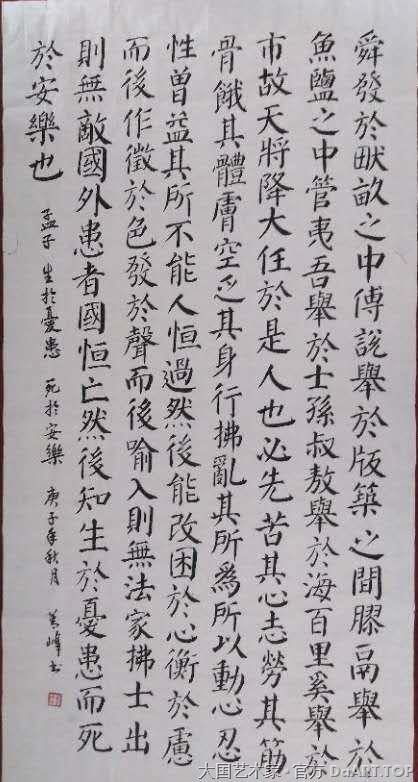 舜發於畎畝之中傅說舉於版築之間膠鬲舉於
魚鹽之中管夷吾舉於士孫叔敖舉於海百里奚舉於
市故天將降大任於是人也必先苦其心志勞其筋
骨餓其體膚空乏其身行拂亂其所爲所以動心忍
性曾益其所不能人恒過然後能改困於心衡於慮
而後作徵於色發於聲而後喻入則無法家拂士出
則無敵國外患者國恒亡然後知生於憂患而死
於安樂也
孟子 生於憂患 死於安樂 庚子年秋月 峰书
大国艺术家